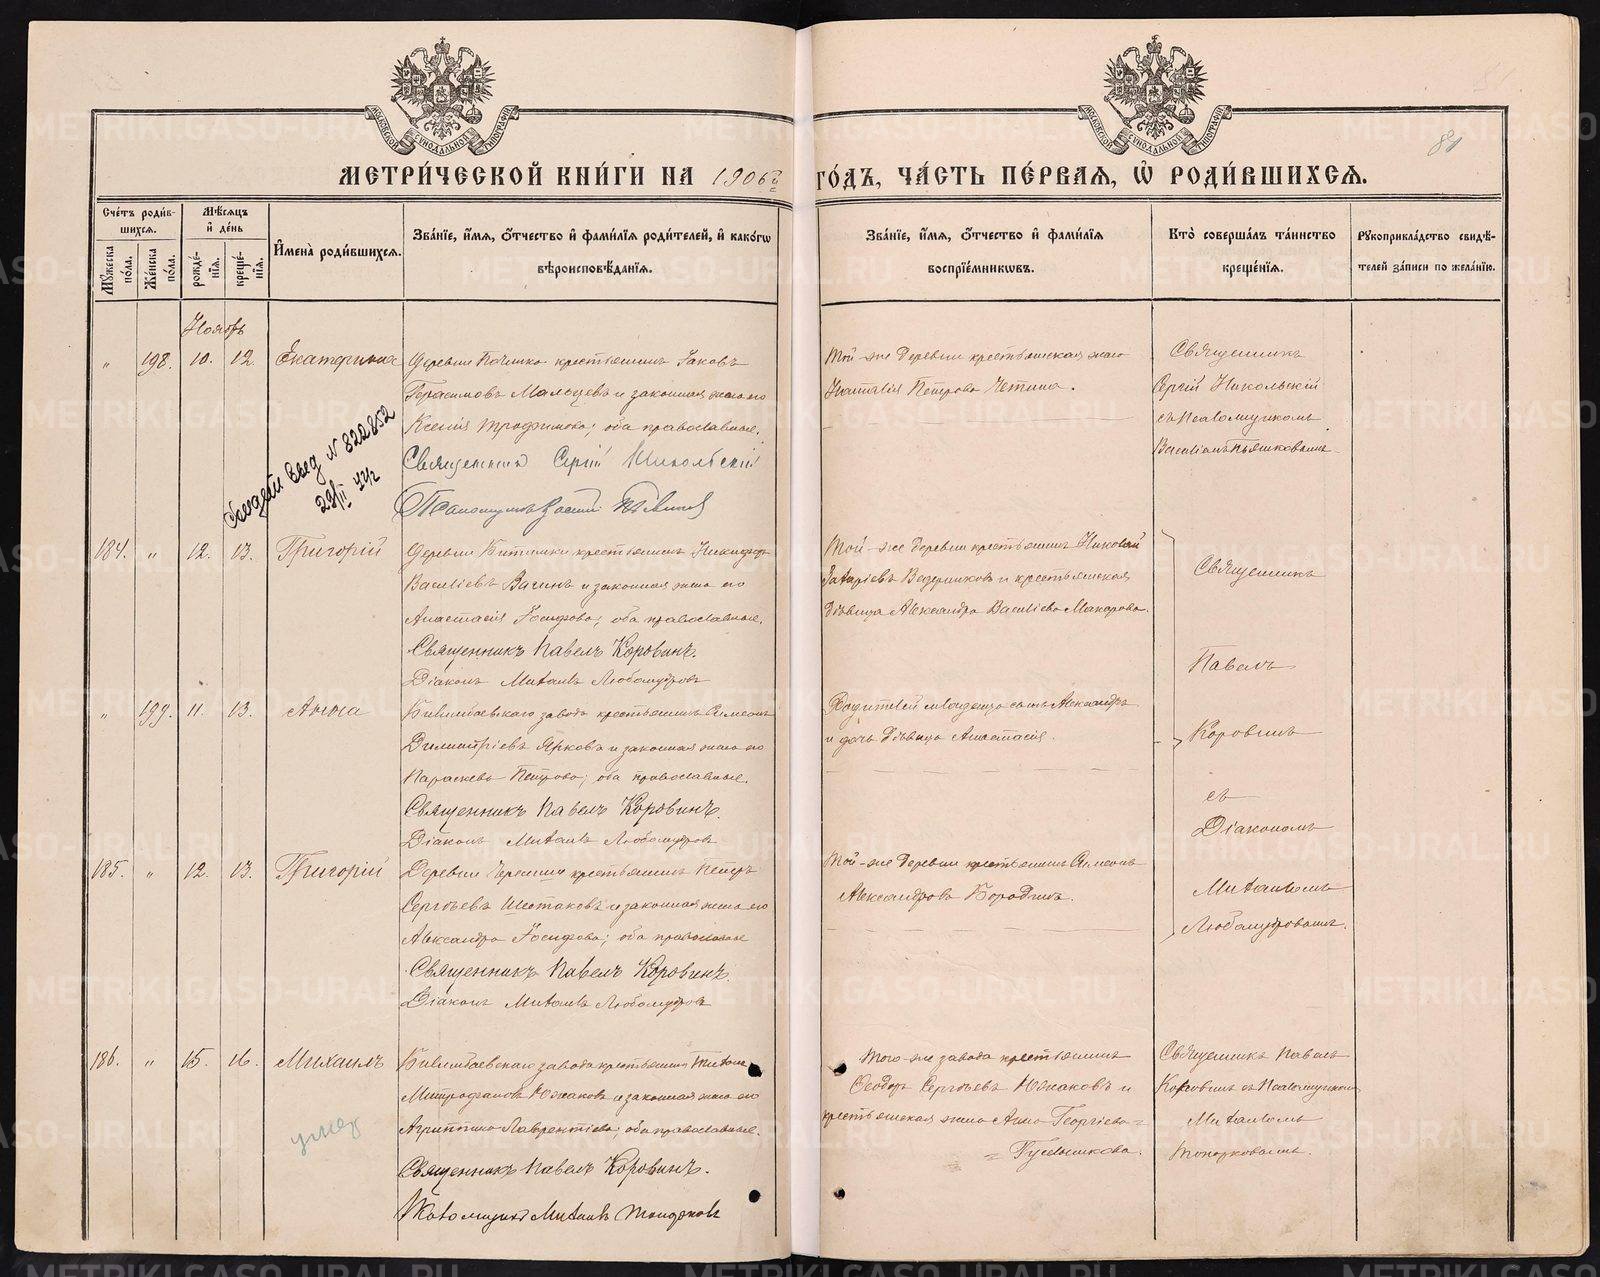 МОСКОВСКОЙ СѴНОДАЛЬНОЙ ТИПОГРАФІИ
МОСКОВСКОЙ СѴНОДАЛЬНОЙ ТИПОГРАФІИ
81
МЕТРИ́ЧЕСКОЙ КНИ́ГИ НА 1906й ГО́ДЪ, ЧА́СТЬ ПЕ́РВАЯ, Ѡ҆ РОДИ́ВШИХСЯ.
Сче́тъ роди́в-
шихся.
Мѣ́сяцъ
и҆ де́нь
Мꙋ́жеска по́ла.
Же́нска по́ла.
рожде́-нія.
креще́-нія.
И҆мена̀ роди́вшихся.
Зва́ніе, и҆́мя, ѻ҆́тчество и҆ фами́лія роди́телей, и҆ како́гѡ
вѣроисповѣ́данія.
Зва́ніе, и҆́мя, ѻ҆́тчество и҆ фами́лія
воспріе́мникѡвъ.
Кто̀ соверша́лъ та́инство
креще́нія.
Рꙋкоприкла́дство свидѣ́-
телей за́писи по жела́нію.
Ноябрь
" 198. 10. 12. Екатерина
Деревни Починка крестьянинъ Іаковъ
Герасимовъ Мальцевъ и законная жена его
Ксенія Трофимова; оба православные.
Священникъ Сергій Никольскій
Псаломщикъ Василій
Той-же деревни крестьянская жена
Наталія Петрова
Священникъ
Сергій Никольскій
съ Псаломщикомъ
Василіемъ
№ 822852
29/II 42г
184. " 12. 13. Григорій
Деревни Битимки крестьянинъ Никифоръ
Васильевъ Вагинъ и законная жена его
Анастасія Іосифова; оба православные.
Священникъ Павелъ Коровинъ.
Діаконъ Михаилъ Любомудровъ
Той-же деревни крестьянинъ Николай
Захаріевъ Ведерниковъ и крестьянская
дѣвица Александра Васильева Макарова.
Священникъ
Павелъ
Коровинъ
съ
Діакономъ
Михаиломъ
Любомудровымъ.
" 199. 11. 13. Анна
Билимбаевскаго завода крестьянинъ Симеонъ
Димитріевъ Ярковъ и законная жена его
Параскева Петрова; оба православные.
Священникъ Павелъ Коровинъ.
Діаконъ Михаилъ Любомудровъ
Родителей младенца сынъ Александръ
и дочь дѣвица Анастасія.
185. " 12. 13. Григорій
Деревни Черемши крестьянинъ Петръ
Сергѣевъ Шестаковъ и законная жена его
Александра Іосифова; оба православные
Священникъ Павелъ Коровинъ.
Діаконъ Михаилъ Любомудровъ
Той-же деревни крестьянинъ Симеонъ
Александровъ Бородинъ.
186. " 15. 16. Михаилъ
умер
Билимбаевскаго завода крестьянинъ
Митрофановъ Южаковъ и законная жена его
Агриппина Лаврентіева; оба православные.
Священникъ Павелъ Коровинъ.
Псаломщикъ Михаилъ Топорковъ
Того-же завода крестьянинъ
Ѳеодоръ Сергѣевъ Южаковъ и
крестьянская жена Анна Георгіева
Гусельникова.
Священникъ Павелъ
Коровинъ съ Псаломщикомъ
Михаиломъ
Топорковымъ.
METRIKI.GASO-URAL.RU